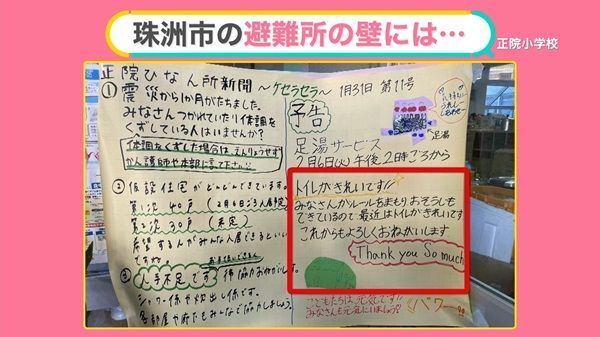 珠洲市の避難所の壁には…
正院小学校
正院ひなん所新聞 〜ケセラセラ〜 1月31日 第11号
① 震災から1か月がたちました。
みなさんつかれていたり体調を
くずしている人はいませんか?
体調をくずした場合は、えんりょせず
かん護師や本部に言て下さい
② 仮設住宅がどんどんできています。
第1次 40戸 (2月6日ごろ入居予定)
第2次 30戸 (未定)
希望する人がみんな入居できるといい
ですね。
③ 人手不足です 協力おねがいします。
シャワー係や炊出し係です。
各部屋や廊下もみんなで協力しましょう。
予告
足湯サービス
2月6日(火)午後2時ごろから
足湯
トイレがきれいです!!
みなさんがルールをまもりおそうじも
できているので最近はトイレがきれいです
これからもよろしくおねがいします
Thank you So much
こどもたちは元気です!!
みなさんも元気にいましょう?
パワー